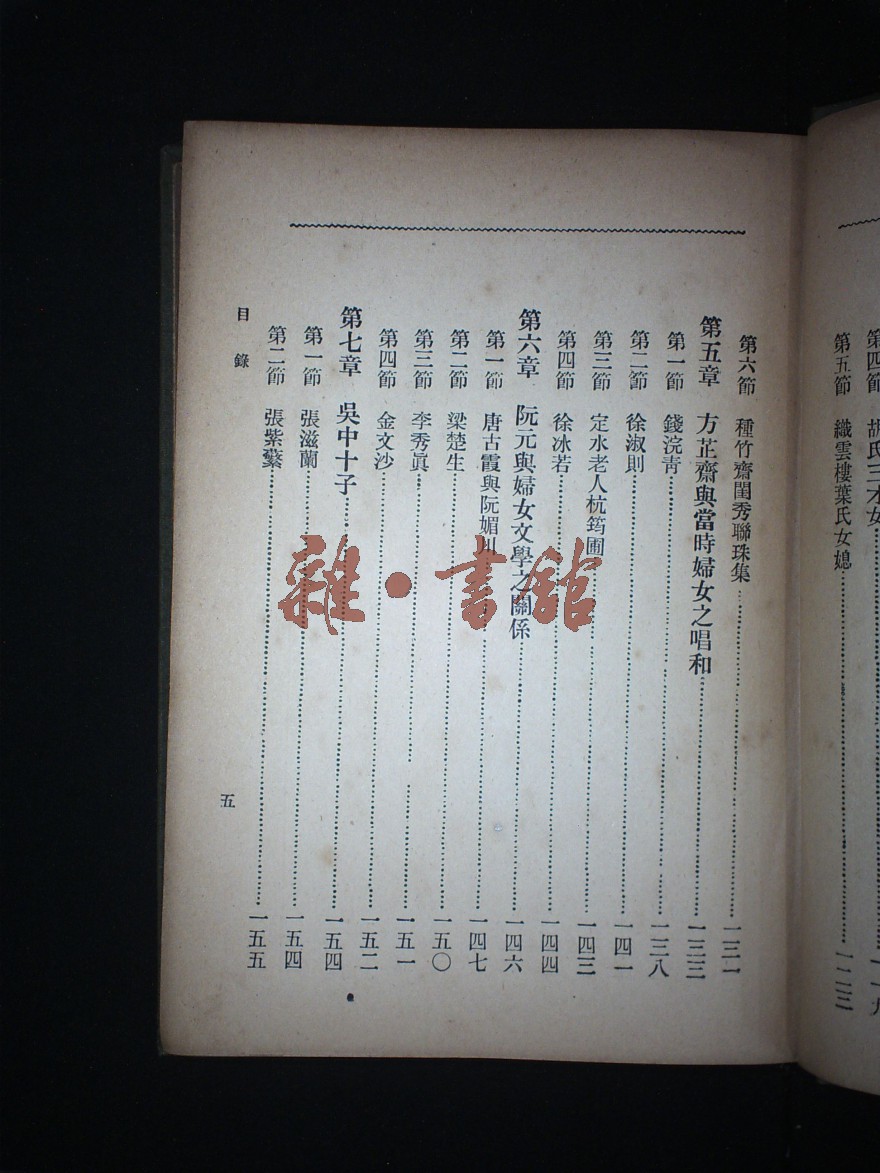 第四節 胡氏三才女 一一九
第五節 織雲樓葉氏女媳 一二三
第六節 種竹齋閨秀聯珠集 一三一
第五章 方芷齋與當時婦女之唱和 一三三
第一節 錢浣青 一三八
第二節 徐淑則 一四一
第三節 定水老人杭筠圃 一四三
第四節 徐冰若 一四四
第六章 阮元與婦女文學之關係 一四六
第一節 唐古霞與阮媚川 一四七
第二節 梁楚生 一五〇
第三節 李秀眞 一五一
第四節 金文沙 一五二
第七章 吳中十子 一五四
第一節 張滋蘭 一五四
第二節 張紫蘩 一五五
目錄
五
雜·書館